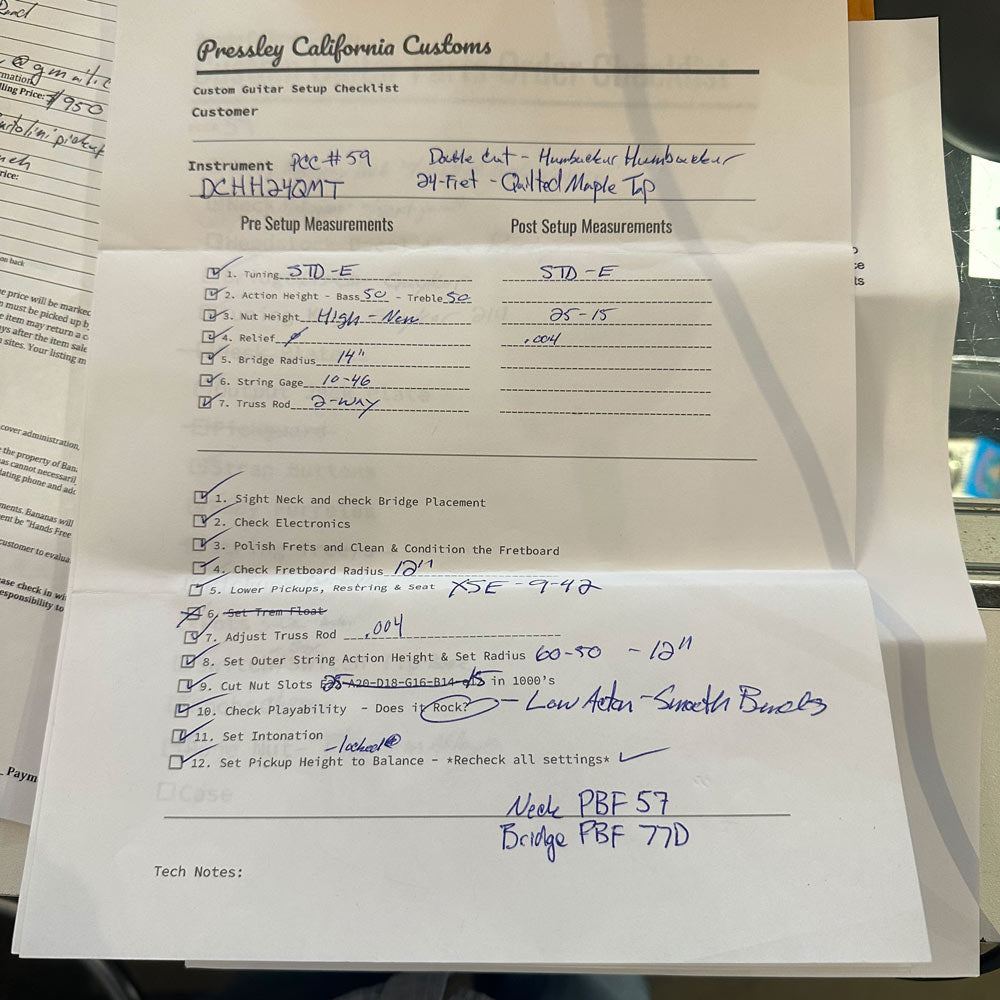 Pressley California Customs
Custom Guitar Setup Checklist
Customer
Instrument PCC #59 Double Cut - Humbucker Humbucker
DCHH24QMT 24-Fret - Quilted Maple Top
Pre Setup Measurements Post Setup Measurements
1. Tuning STD-E STD-E
2. Action Height - Bass 50 - Treble 50
3. Nut Height High - New 25-15
4. Relief .004
5. Bridge Radius 14"
6. String Gage 10-46
7. Truss Rod 2-way
1. Sight Neck and check Bridge Placement
2. Check Electronics
3. Polish Frets and Clean & Condition the Fretboard
4. Check Fretboard Radius 12"
5. Lower Pickups, Restring & Seat XSE - 9-42
6. Set Trem Float
7. Adjust Truss Rod .004
8. Set Outer String Action Height & Set Radius 60-50 - 12"
9. Cut Nut Slots 25-A20-D18-G16-B14-15 in 1000's
10. Check Playability - Does it Rock? - Low Action - Smooth Bends
11. Set Intonation
- locked
12. Set Pickup Height to Balance - *Recheck all settings*
Neck PBF 57
Bridge PBF 77D
Tech Notes:
Case
Road
@gmail.c
mation
ling Price: $950
rice:
on back
e price will be marked
n must be picked up b
e item may return a c
ys after the item sale
n sites. Your listing m
cover administration,
the property of Ban
as cannot necessaril
lating phone and add
ments. Bananas will
ent be "Hands Free
customer to evalua
ase check in wi
esponsibility to
Paym